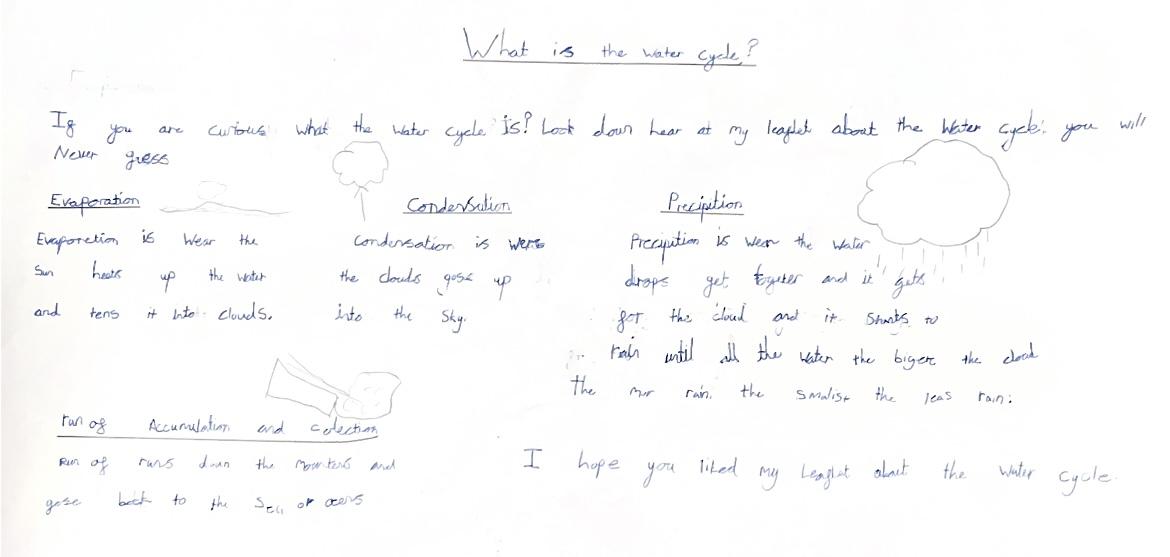 What is the water cycle?
If you are curious what the water cycle is? Look down hear at my leaflet about the water cycle. you will
Never guess
Evaporation
Evaporetion is wear the
Sun heats up the water
and tens it into clouds.
Condensation
Condensation is were
the clouds gose up
into the sky.
Precipition
Precipition is wear the water
drops get together and it gets
for the cloud and it starts to
rain until all the water the biger the cloud
the mor rain. the smalist the leas rain.
run of Accumulation and colection
Run of runs down the mountens and
gose back to the sea or
I hope you liked my leaflet about the water cycle.